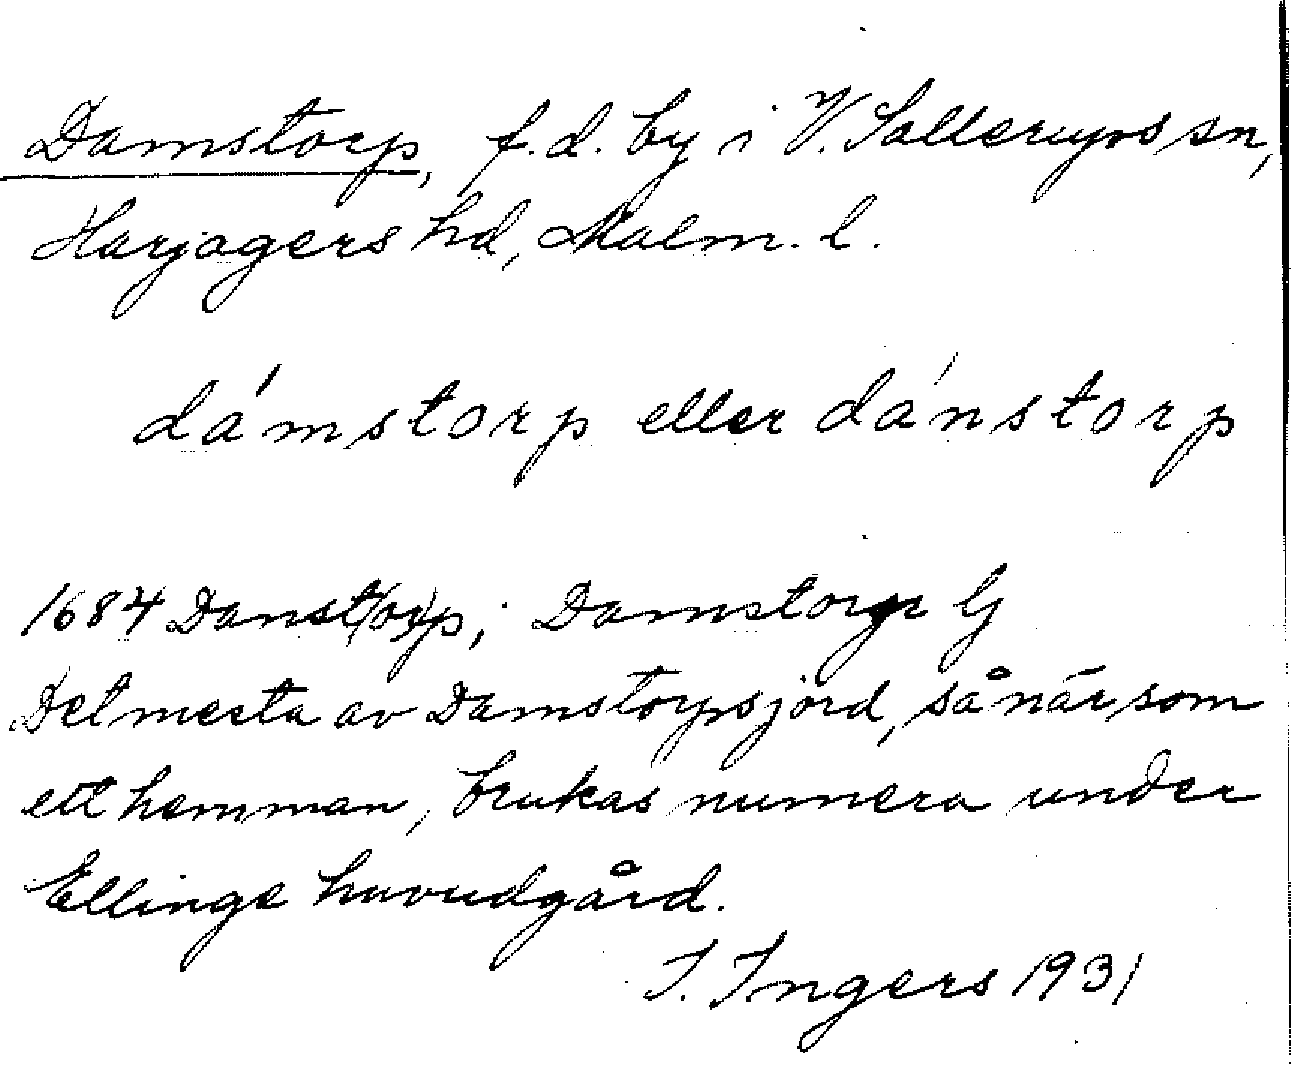 Damstorp, f.d. by i V. Sallerups sn,
Harjagers hd, Malm. l.
dámstorp eller dánstorp
1684 Danst(or)p; Damstorp G
Det mesta av Damstorps jord, så när som
ett hemman, brukas numera under
Ellinge huvudgård.
I. Ingers 1931